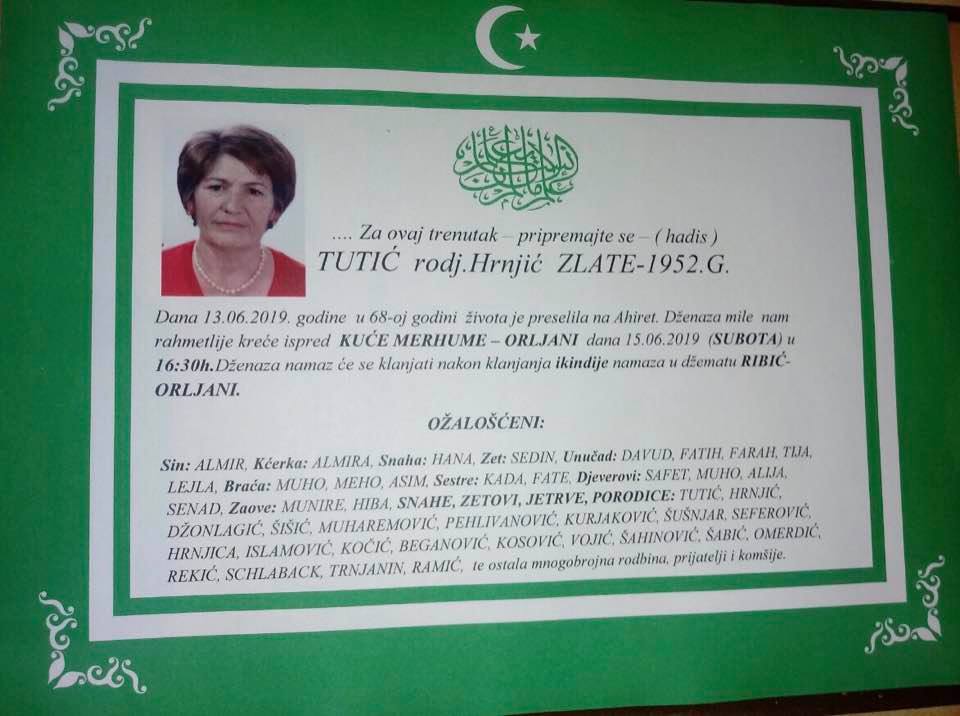 .... Za ovaj trenutak – pripremajte se – ( hadis )
TUTIĆ rodj.Hrnjić ZLATE-1952.G.
Dana 13.06.2019. godine u 68-oj godini života je preselila na Ahiret. Dženaza mile nam
rahmetlije kreće ispred KUĆE MERHUME – ORLJANI dana 15.06.2019 (SUBOTA) u
16:30h.Dženaza namaz će se klanjati nakon klanjanja ikindije namaza u džematu RIBIĆ-
ORLJANI.
OŽALOŠĆENI:
Sin: ALMIR, Kćerka: ALMIRA, Snaha: HANA, Zet: SEDIN, Unučad: DAVUD, FATIH, FARAH, TIJA,
LEJLA, Braća: MUHO, MEHO, ASIM, Sestre: KADA, FATE, Djeverovi: SAFET, MUHO, ALIJA,
SENAD, Zaove: MUNIRE, HIBA, SNAHE, ZETOVI, JETRVE, PORODICE: TUTIĆ, HRNJIĆ,
DŽONLAGIĆ, ŠIŠIĆ, MUHAREMOVIĆ, PEHLIVANOVIĆ, KURJAKOVIĆ, ŠUŠNJAR, SEFEROVIĆ,
HRNJICA, ISLAMOVIĆ, KOČIĆ, BEGANOVIĆ, KOSOVIĆ, VOJIĆ, ŠAHINOVIĆ, ŠABIĆ, OMERDIĆ,
REKIĆ, SCHLABACK, TRNJANIN, RAMIĆ, te ostala mnogobrojna rodbina, prijatelji i komšije.